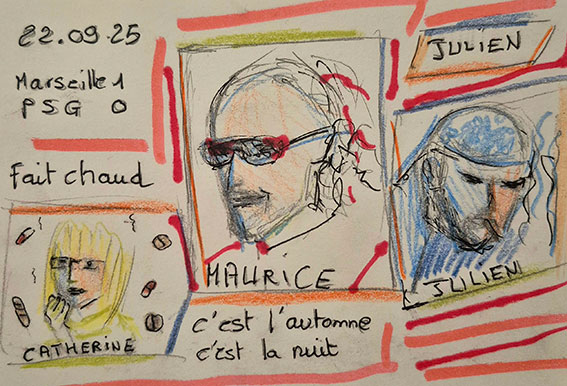 22.09.25
Marseille 1
PSG 0
Fait chaud
CATHERINE
MAURICE
c'est l'automne
c'est la nuit
JULIEN
JULIEN